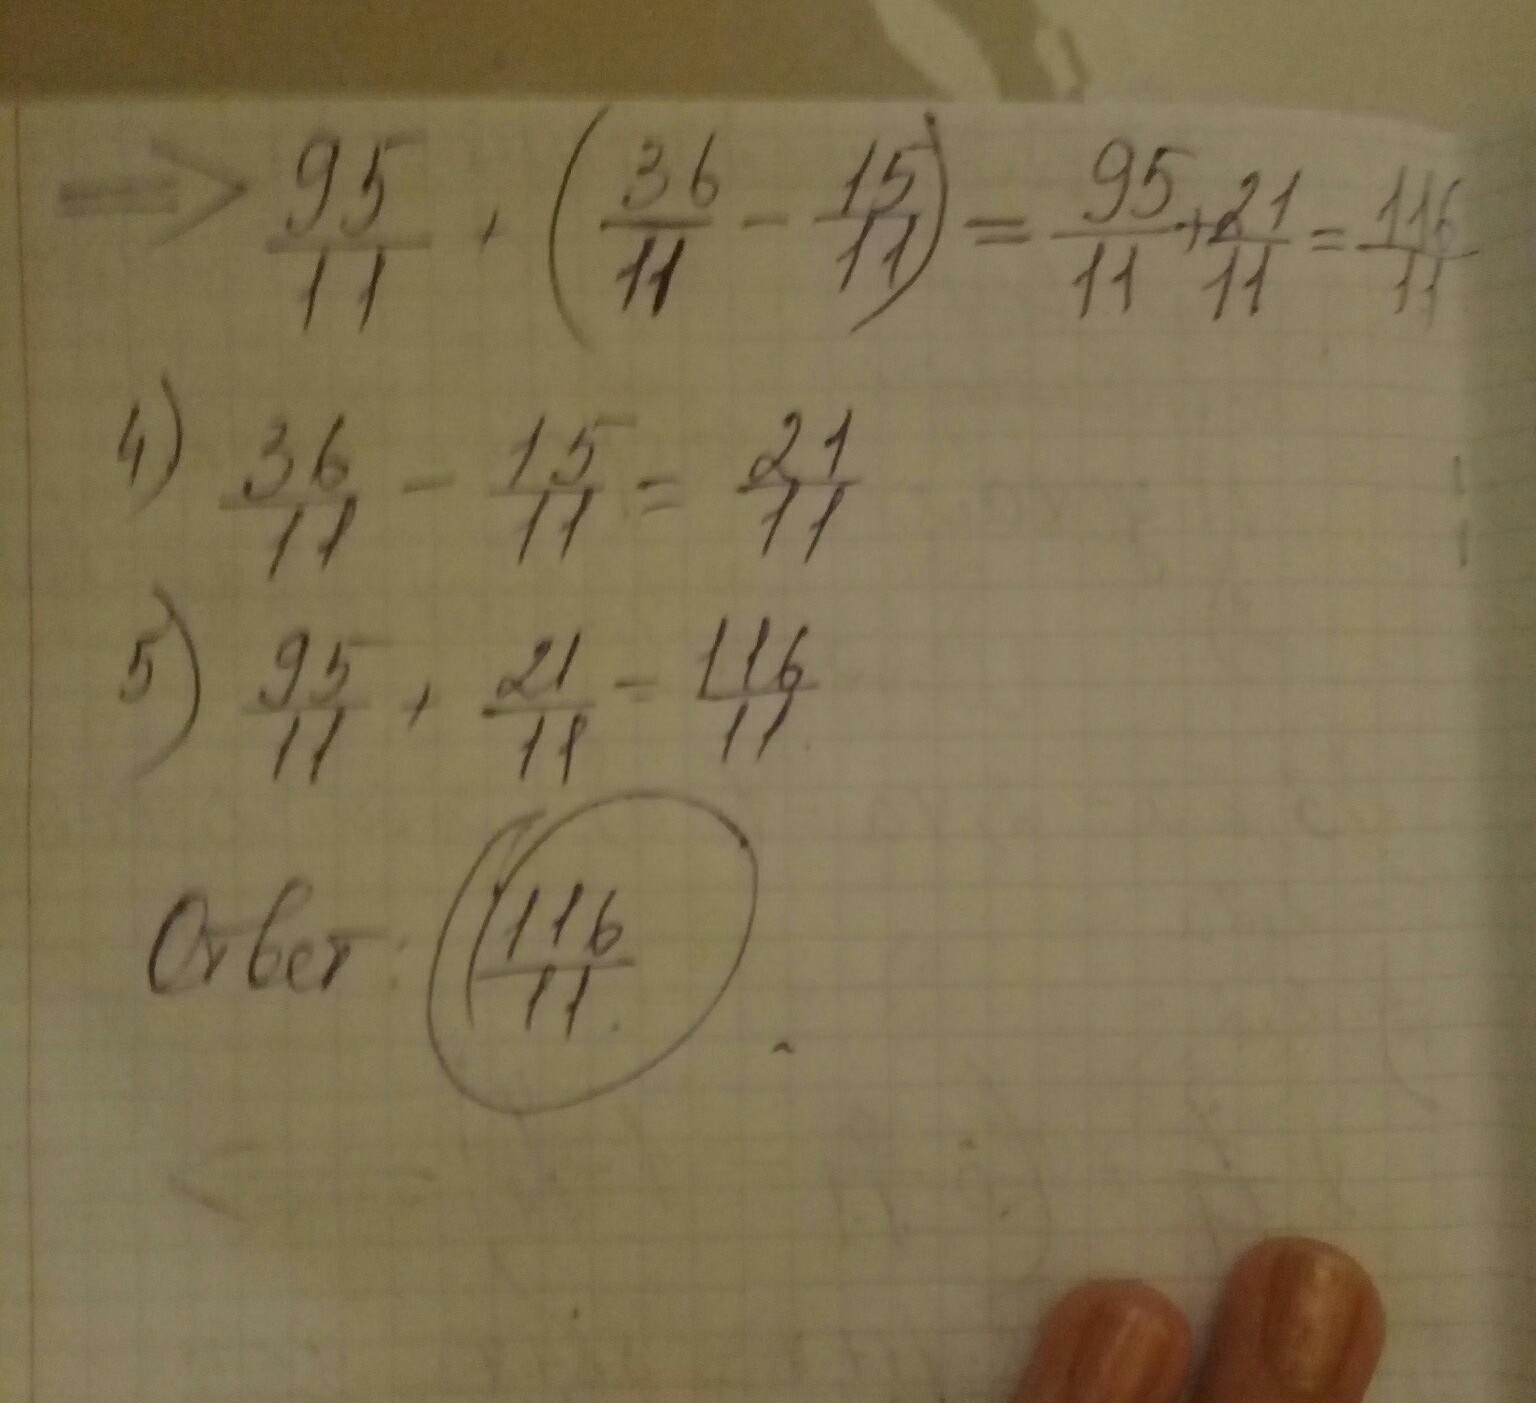 ⇒ 95/11 + (36/11 − 15/11) = 95/11 + 21/11 = 116/11
4) 36/11 − 15/11 = 21/11
5) 95/11 + 21/11 = 116/11
Ответ: 116/11.